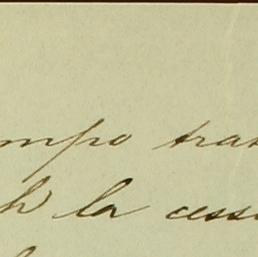 mpo tras
h la cess